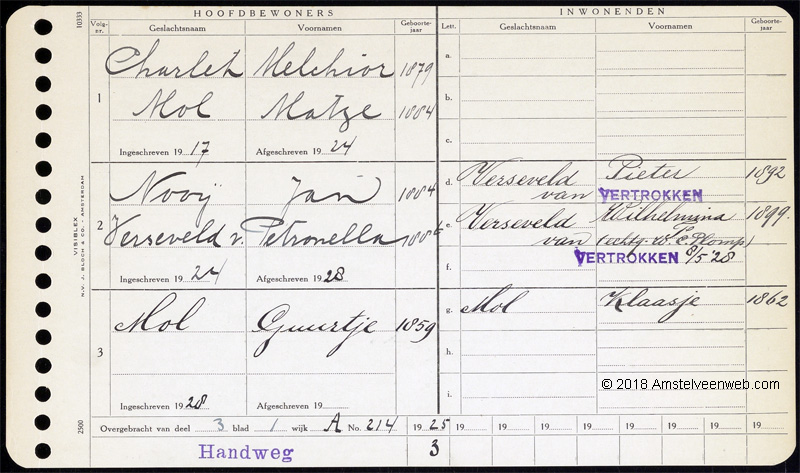 HOOFDBEWONERS
Volg-nr. Geslachtsnaam Voornamen Geboorte-jaar
1
Charlet Melchior 1879
Mol Matze 1884
Ingeschreven 19 17 Afgeschreven 19 24
2
Nooij Jan 1884
Verseveld v. Petronella 1886
Ingeschreven 19 24 Afgeschreven 19 28
3
Mol Guurtje 1859
Ingeschreven 19 28 Afgeschreven 19
INWONENDEN
Lett. Geslachtsnaam Voornamen Geboorte-jaar
a.
b.
c.
d. Verseveld Pieter 1892
van VERTROKKEN
e. Verseveld Wilhelmina 1899.
van (echtg. v. T.E. Plomp)
f. VERTROKKEN 9/5 '28
g. Mol Klaasje 1862
h.
i.
© 2018 Amstelveenweb.com
Overgebracht van deel 3 blad 1 wijk A No. 214 19 25 19 19 19 19 19 19 19
Handweg 3
10333
VISIBLEX
N.V. J. BLOCH & CO. - AMSTERDAM
2500